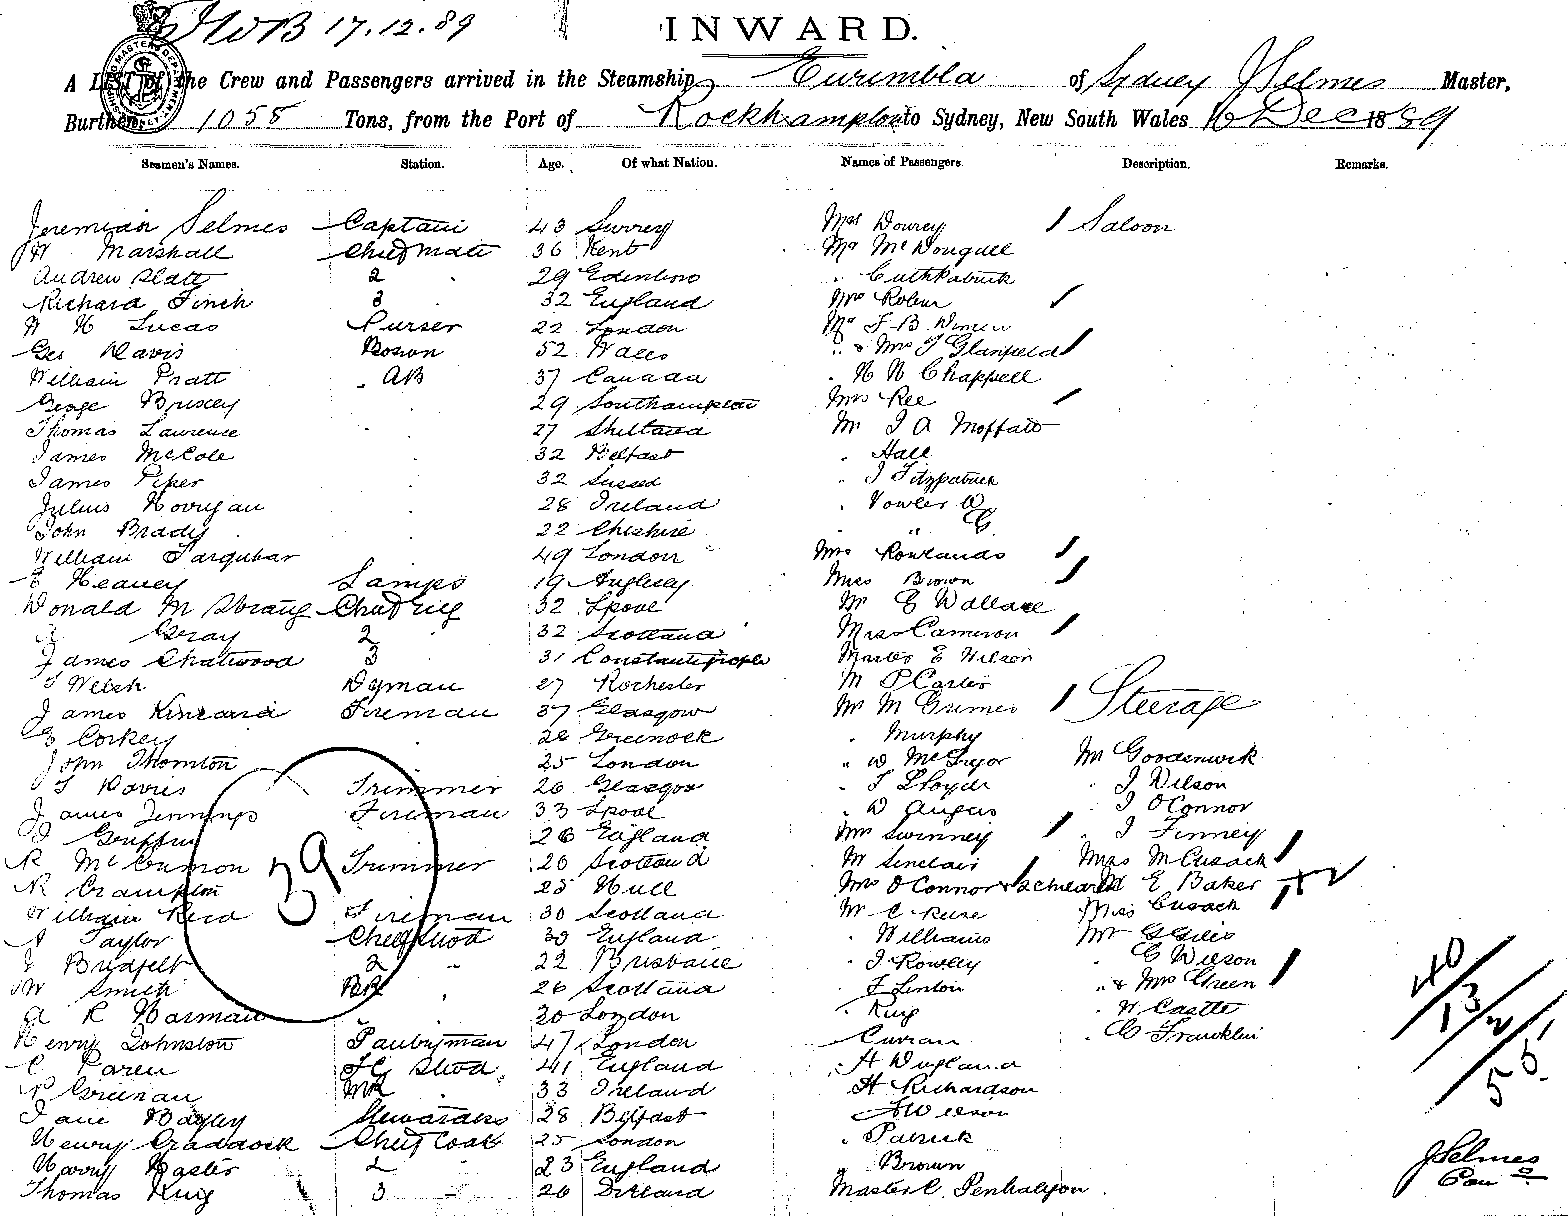 JWB 17.12.89
INWARD.
A LIST of the Crew and Passengers arrived in the Steamship Eurimbla of Sydney J Selmes Master,
Burthen 1058 Tons, from the Port of Rockhampton to Sydney, New South Wales 16 Dec 1889
Seamen's Names. Station. Age. Of what Nation. Names of Passengers. Description. Remarks.
Jeremiah Selmes Captain 43 Surrey Mrs Dowrey / Saloon
W Marshall Chief mate 36 Kent Mr McDougall
Andrew Slatt 2 " 29 Edenboro " Cuthpatrick
Richard Finch 3 " 32 England Mrs Robin /
W H Lucas Purser 22 London Mr F B Winen
Geo Davis Bosun 52 Wales " & Mrs J Glanfield /
William Pratt AB 37 Canada " H W Chappell
George Brixey 29 Southampton Mrs Ree /
Thomas Lawrence 27 Shetland Mr J A Moffatt
James McCole 32 Belfast " Hall
James Piper 32 Sussex " J Fitzpatrick
Julius Horrigan 28 Ireland " Vowler W
John Brady 22 Cheshire " " G
William Farquhar 49 London Mrs Rowlands /
E Heavey Lamps 19 Anglesey Miss Brown /
Donald M Strang Chief Eng 32 Lpool Mr G Wallace
Gray 2 " 32 Scotland Miss Cameron /
James Chatwood 3 31 Constantinople Master E Wilson
T Welsh Dyman 27 Rochester M P Carter
James Kincaid Fireman 37 Glasgow Mr M Grimes / Steerage
G Corkey 28 Greenock " Murphy
John Thornton 25 London " W McGregor Mr Goodenwick
T Davis Trimmer 26 Glasgow " T Lloyd " J Wilson
James Jennings Fireman 33 Lpool " D Angus " J OConnor
J Griffin 26 England Mrs Swinney / " J Finney
R McCunnon Trimmer 20 Scotland Mr Sinclair Mrs McCusack /
R Crampton 25 Hull Mrs O'Connor & child M E Baker
William Reid Fireman 30 Scotland Mr C Ruse Miss Cusack
A Taylor Chief Stwd 30 England " Williams Mr G Giles
J Bridfelt 2 " 22 Brisbane " J Rowley " C Wilson
W Smith BR 26 Scotland " F Linton " & Mrs Green /
A R Harman 30 London " King " W Castle
Henry Johnston Pantryman 47 London " Curran " C Franklin
C Karen FC Stwd 41 England " H England
P Greenan MR 33 Ireland " H Richardson
Jane Bagley Stewardess 28 Belfast " A Wilson
Henry Craddock Chief Cook 25 London " Patrick
Harry Haster 2 " 23 England " Brown
Thomas King 3 " 26 Ireland Master C. Penhaligon
39
40/13/2/55
J Selmes
Com